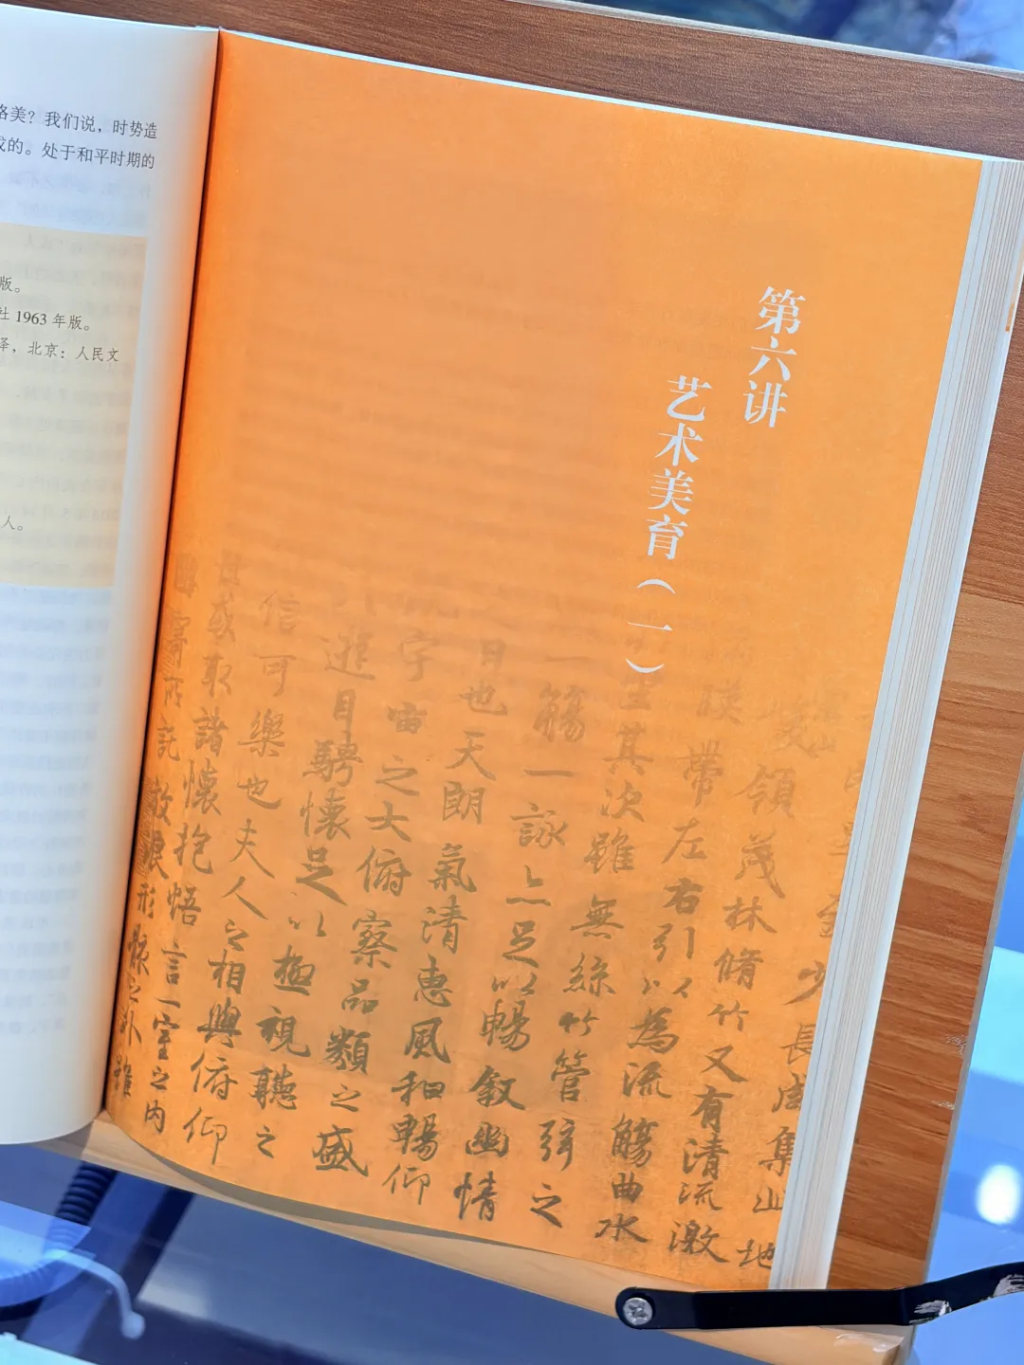 美？我们说，时势造
的。处于和平时期的
版。
社 1963 年版。
译，北京：人民文
人。
第六讲
艺术美育（一）
畢至少長咸集此地
峻領茂林脩竹又有清流激
暎帶左右引以為流觴曲水
坐其次雖無絲竹管弦之
一觴一詠亦足以暢敘幽情
日也天朗氣清惠風和暢仰
宇宙之大俯察品類之盛
遊目騁懷足以極視聽之
信可樂也夫人之相與俯仰
世或取諸懷抱悟言一室之內
因寄所託放浪形骸之外雖